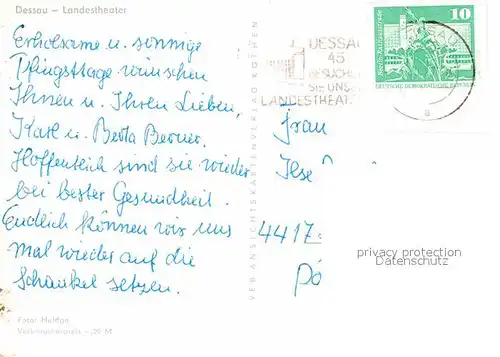 Dessau – Landestheater
Erholsame u. sonnige
Pfingsttage wünschen
Ihnen u. Ihren Lieben,
Karl u. Berta Berner.
Hoffentlich sind sie wieder
bei bester Gesundheit.
Endlich können wir uns
mal wieder auf die
Schaukel setzen.
Foto:
Verbraucherpreis –,20 M
VEB ANSICHTSKARTENVERLAG KÖTHEN
DESSAU
45
BESUCHEN
SIE UNSER
LANDESTHEATER
10
DEUTSCHE DEMOKRATISCHE REPUBLIK
a
Frau
Ilse
4417
privacy protection
Datenschutz